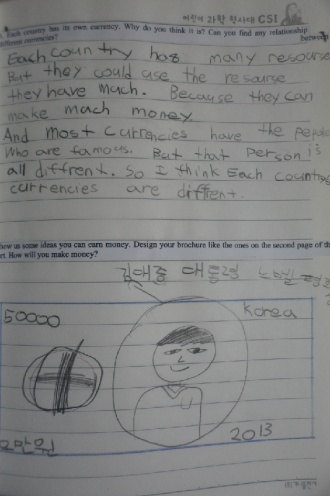 어린이 과학 형사대 CSI
Each country has its own currency. Why do you think it is? Can you find any relationship between
different currencies?
Each country has many resourse
But they could use the resourse
they have mach. Because they can
make mach money.
And most currencies have the
who are famous. But that person is
all diffrent. So I think Each country
currencies are diffrent.
how us some ideas you can earn money. Design your brochure like the ones on the second page of th
rt. How will you make money?
김대중 대통령 노벨
50000
Korea
2013